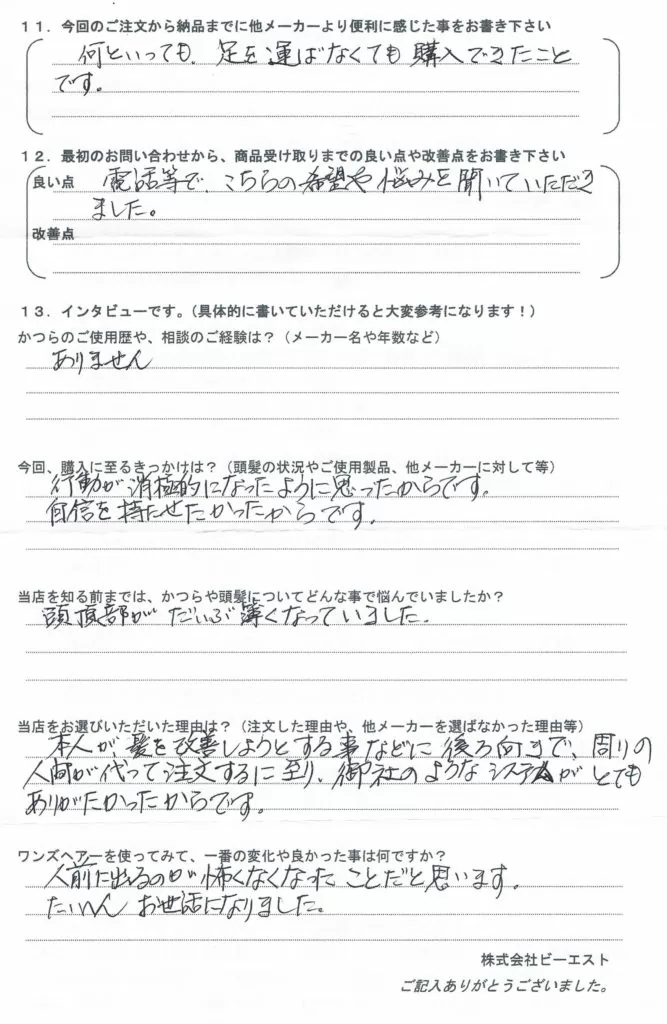 １１．今回のご注文から納品までに他メーカーより便利に感じた事をお書き下さい
何といっても、足を運ばなくても購入できたこと
です。
１２．最初のお問い合わせから、商品受け取りまでの良い点や改善点をお書き下さい
良い点 電話等で、こちらの希望や悩みを聞いていただき
ました。
改善点
１３．インタビューです。（具体的に書いていただけると大変参考になります！）
かつらのご使用歴や、相談のご経験は？（メーカー名や年数など）
ありません
今回、購入に至るきっかけは？（頭髪の状況やご使用製品、他メーカーに対して等）
行動が消極的になったように思ったからです。
自信を持たせたかったからです。
当店を知る前までは、かつらや頭髪についてどんな事で悩んでいましたか？
頭頂部がだいぶ薄くなっていました。
当店をお選びいただいた理由は？（注文した理由や、他メーカーを選ばなかった理由等）
本人が、髪を改善しようとする事などに後ろ向きで、周りの
人間が代って注文するに至り、御社のようなシステムがとても
ありがたかったからです。
ワンズヘアーを使ってみて、一番の変化や良かった事は何ですか？
人前に出るのが怖くなくなったことだと思います。
たいへんお世話になりました。
株式会社ビーエスト
ご記入ありがとうございました。